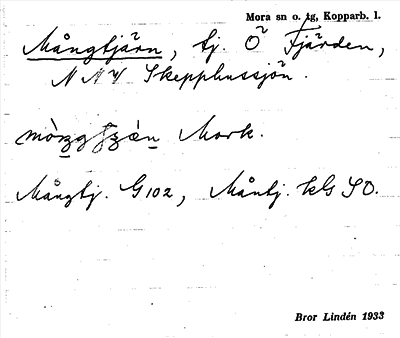 Mora sn o. tg, Kopparb. l.
Mångtjärn, tj. Ö Fjärden,
NNV Skepphussjön.
Mork.
Mångtj. G 102, Måntj. kls SO.
Bror Lindén 1933